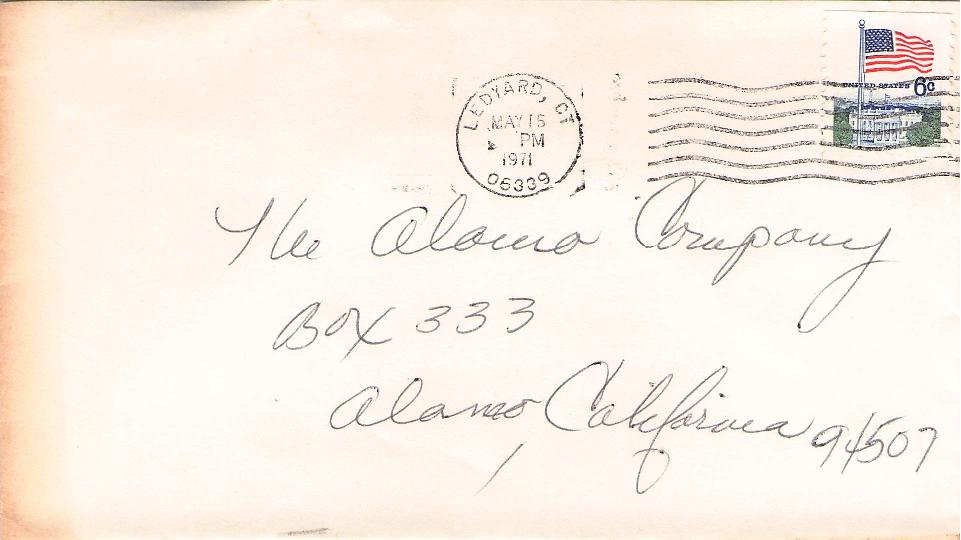 UNITED STATES 6c
LEDYARD, CT
MAY 15
PM
1971
06339
The Alamo Company
Box 333
Alamo California 94507